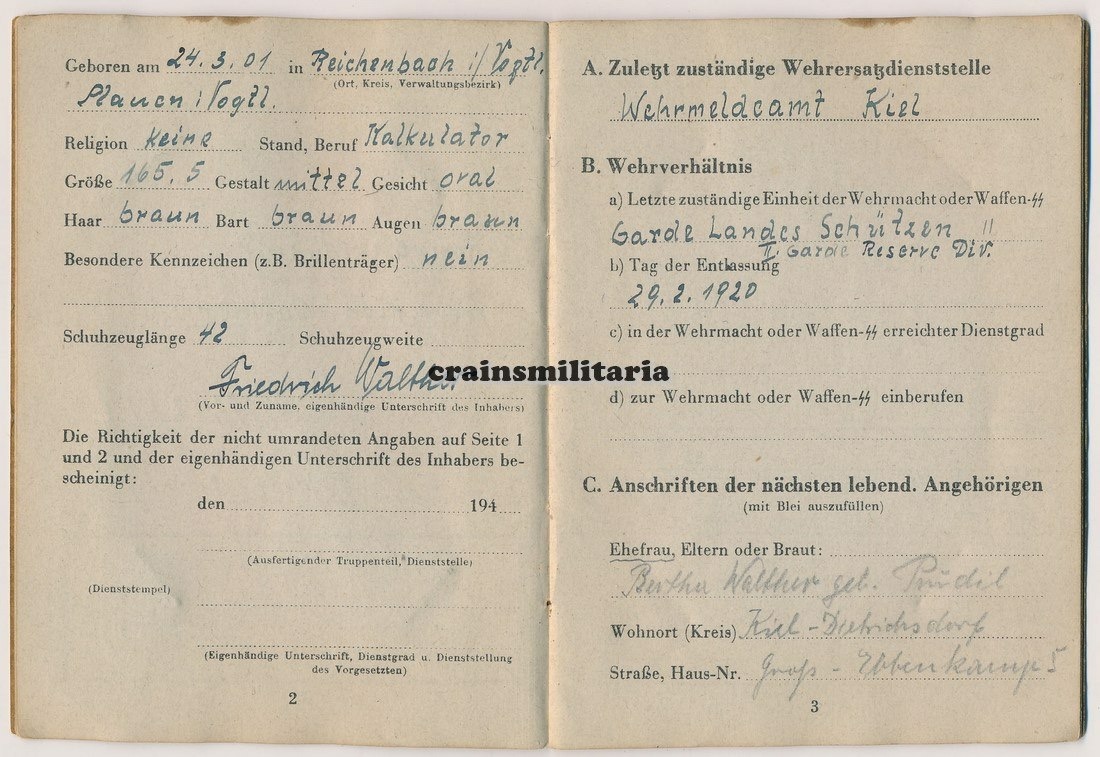 Geboren am 24.3.01 in Reichenbach i/Vogtl.
(Ort, Kreis, Verwaltungsbezirk)
Plauen i Vogtl.
Religion keine Stand, Beruf Kalkulator
Größe 165.5 Gestalt mittel Gesicht oval
Haar braun Bart braun Augen braun
Besondere Kennzeichen (z.B. Brillenträger) nein
Schuhzeuglänge 42 Schuhzeugweite
Friedrich Walther
(Vor- und Zuname, eigenhändige Unterschrift des Inhabers)
Die Richtigkeit der nicht umrandeten Angaben auf Seite 1
und 2 und der eigenhändigen Unterschrift des Inhabers be-
scheinigt:
den 194
(Ausfertigender Truppenteil, Dienststelle)
(Dienststempel)
(Eigenhändige Unterschrift, Dienstgrad u. Dienststellung
des Vorgesetzten)
2
A. Zuletzt zuständige Wehrersatzdienststelle
Wehrmeldeamt Kiel
B. Wehrverhältnis
a) Letzte zuständige Einheit der Wehrmacht oder Waffen-ϟϟ
Garde Landes Schützen II
II. Garde Reserve Div.
b) Tag der Entlassung
29.2.1920
c) in der Wehrmacht oder Waffen-ϟϟ erreichter Dienstgrad
d) zur Wehrmacht oder Waffen-ϟϟ einberufen
C. Anschriften der nächsten lebend. Angehörigen
(mit Blei auszufüllen)
Ehefrau, Eltern oder Braut:
Bertha Walther geb.
Wohnort (Kreis) Kiel-Dietrichsdorf
Straße, Haus-Nr. Groß-Ebbenkamp 5
3
crainsmilitaria